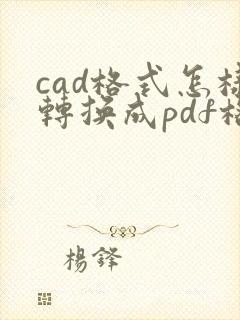 cad格式怎
轉換成pdf
楊鋒